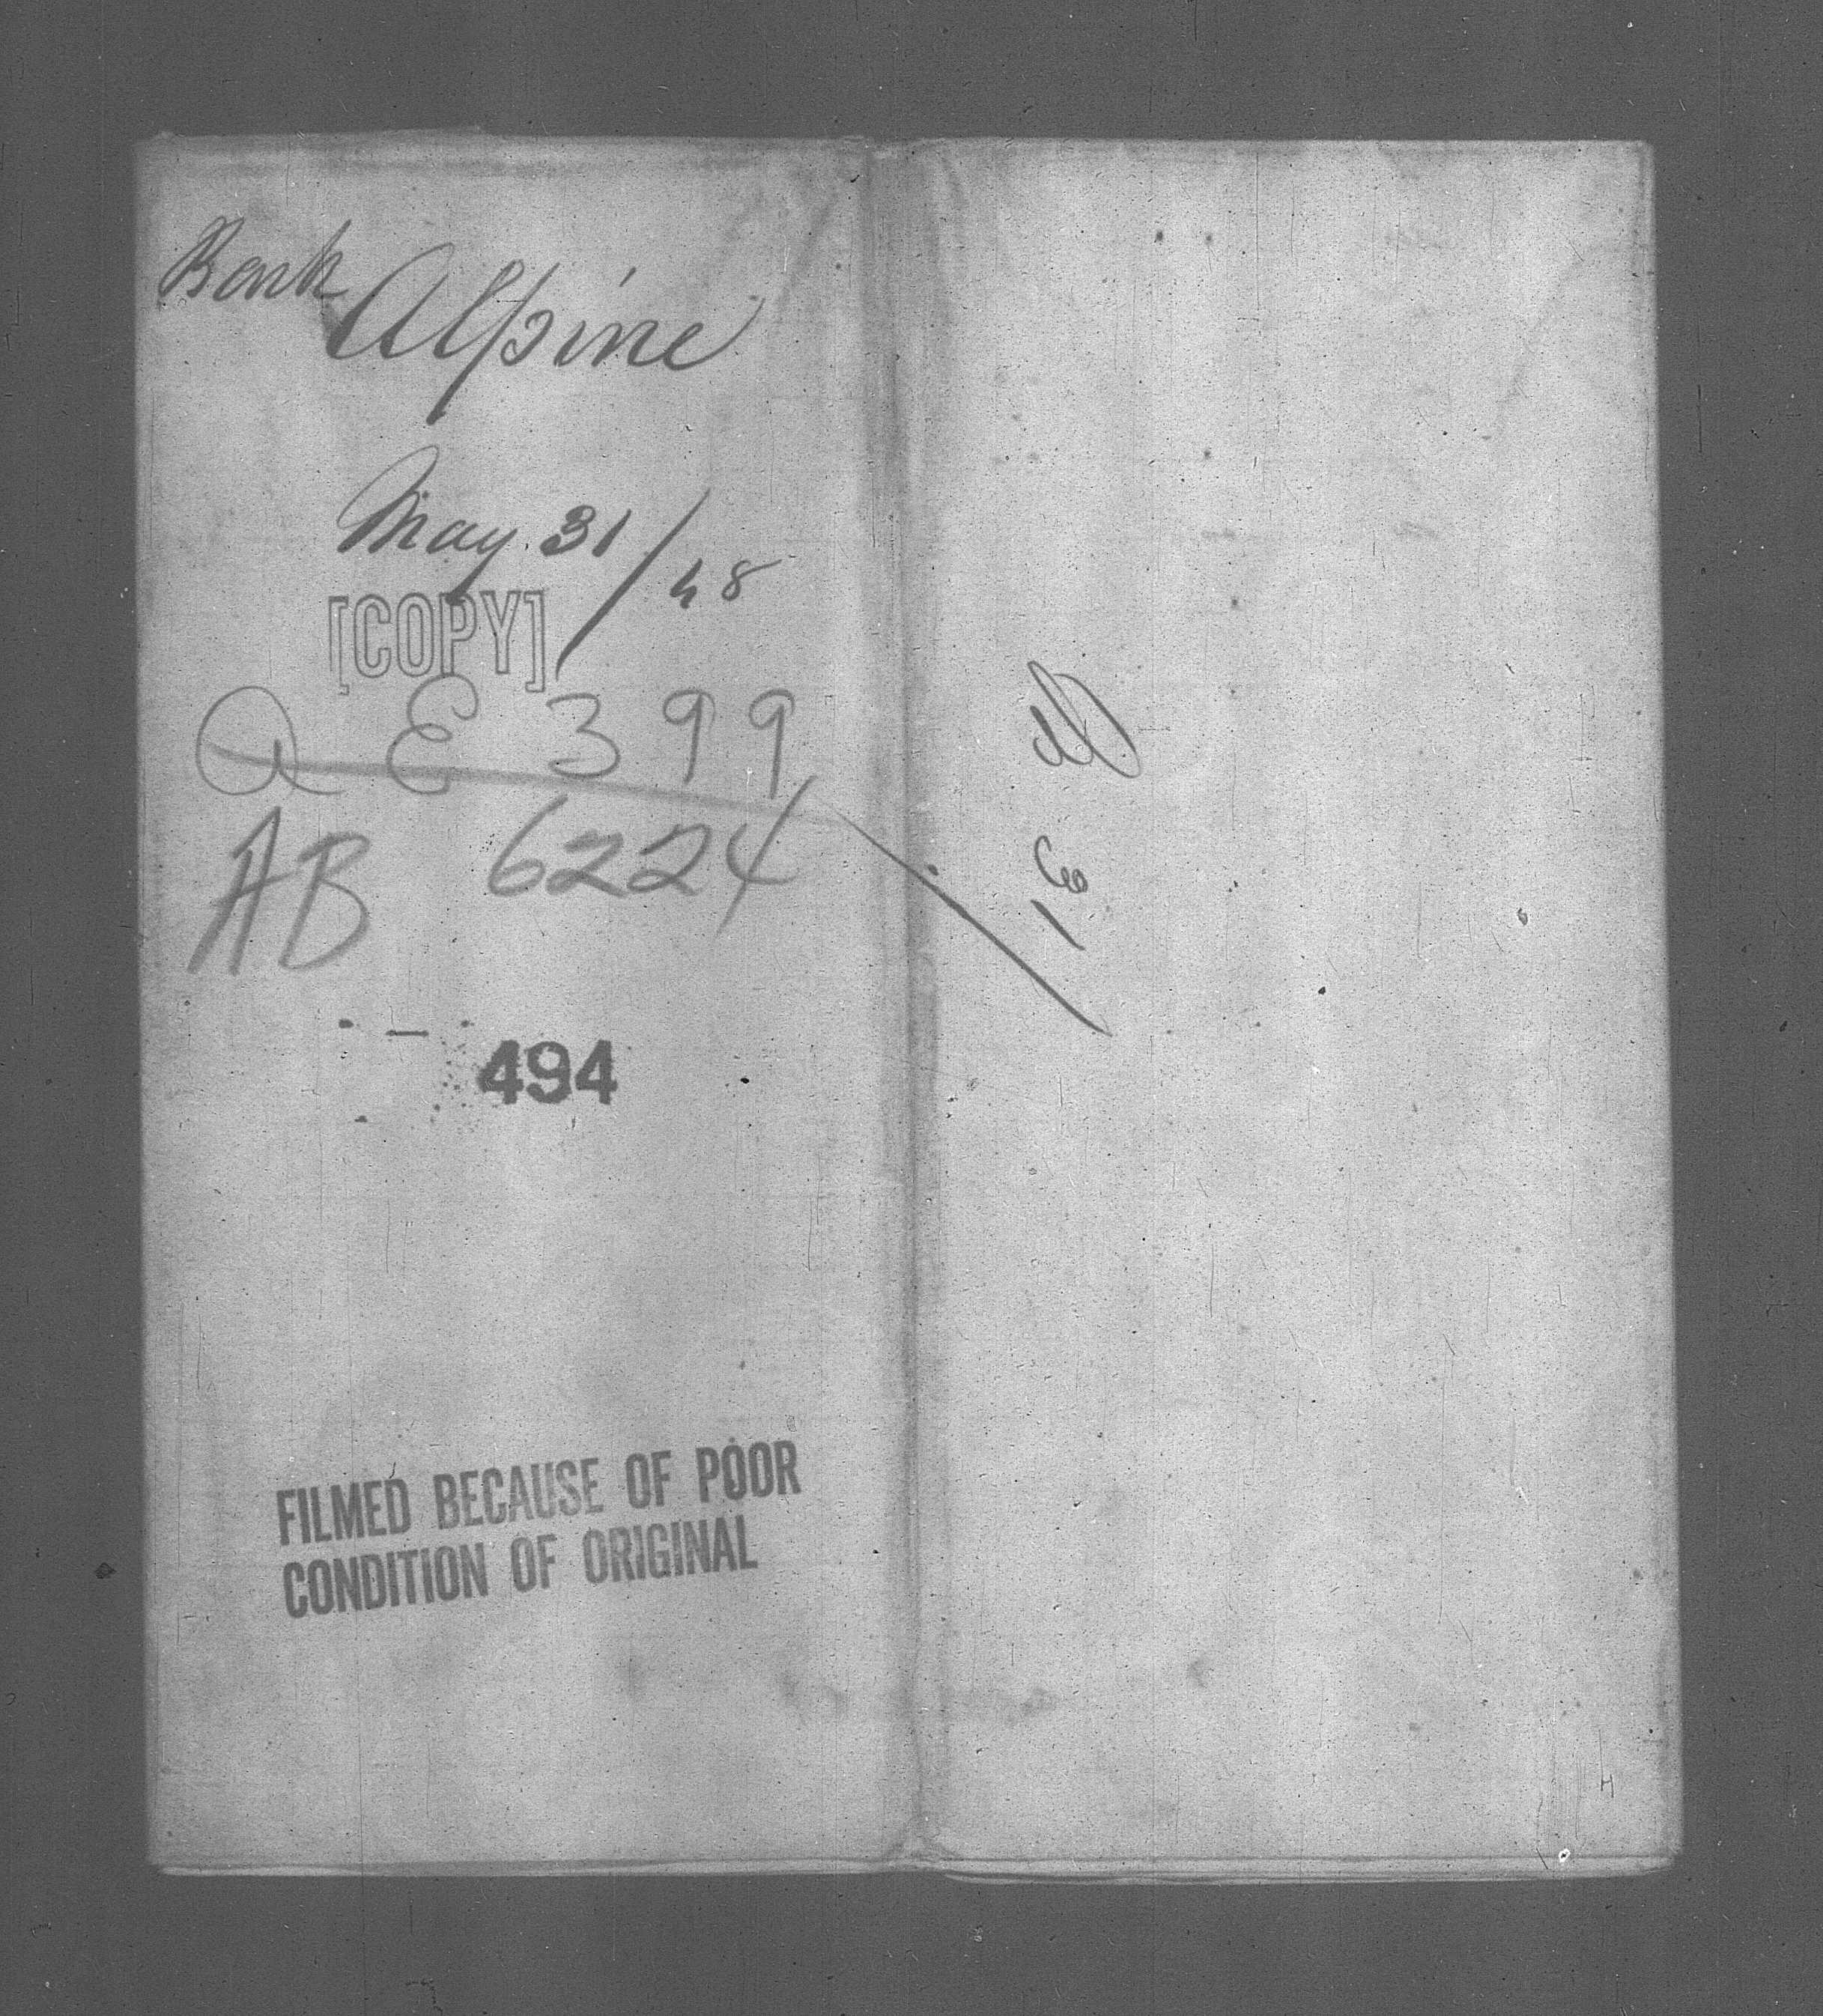 Bark
Alpine
May 31/48
[COPY]
Q E 399
AB 6224
494
FILMED BECAUSE OF POOR
CONDITION OF ORIGINAL
31